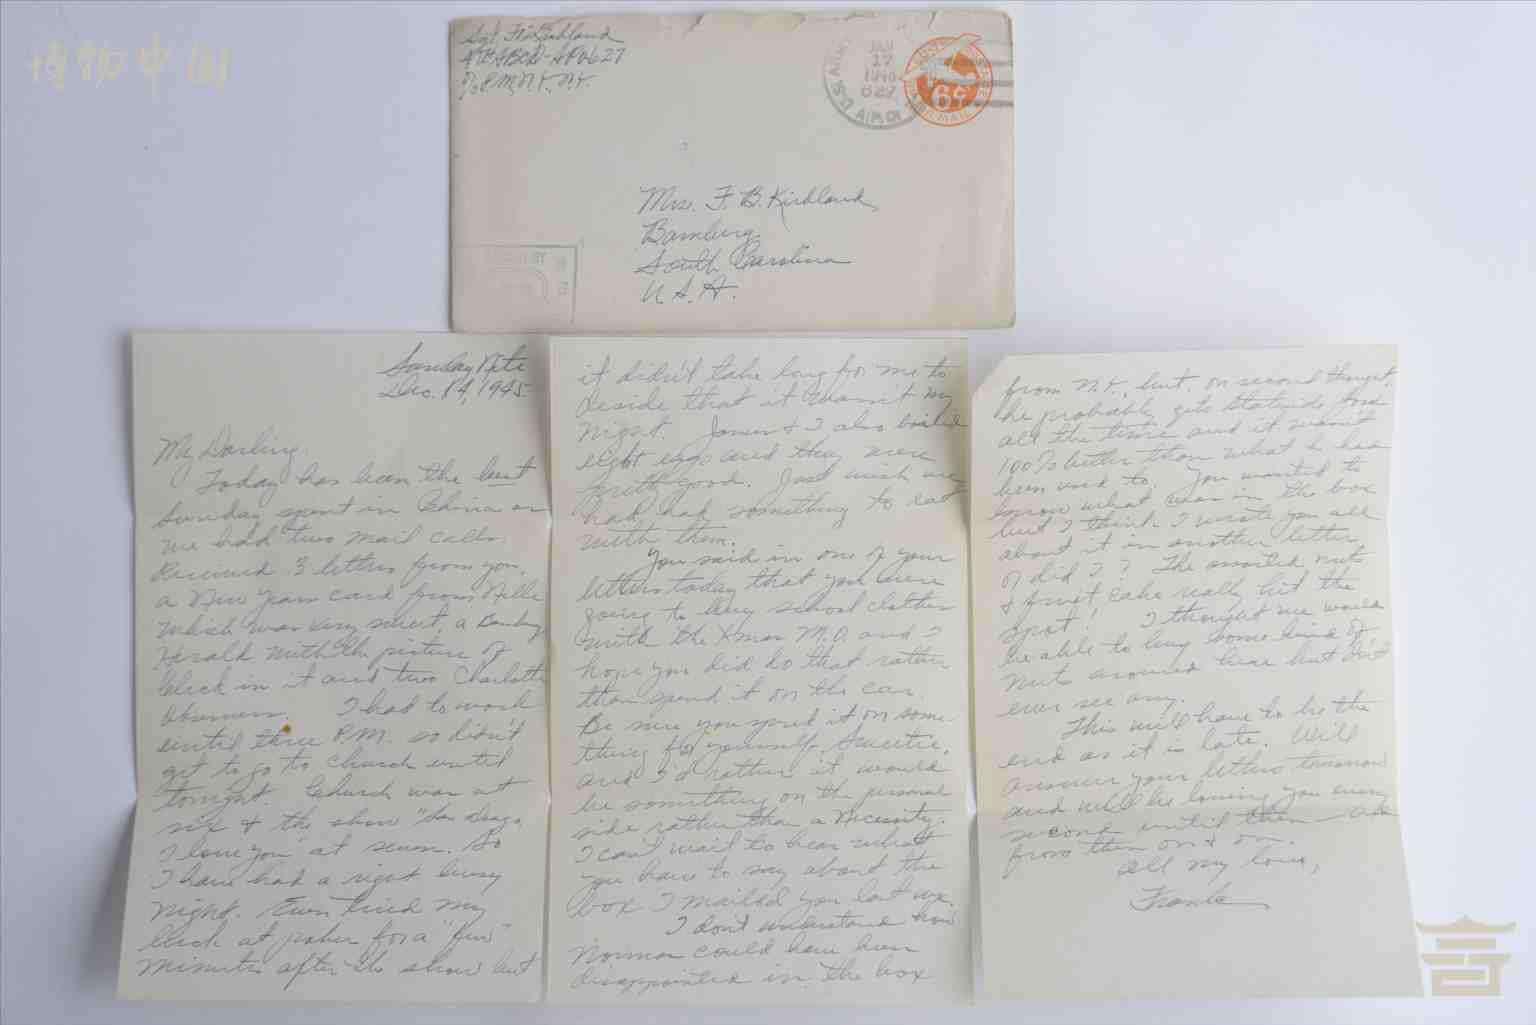 博物中国
Sgt. F. B. Kirkland
4th ABCD - APO 627
c/o P.M. N.Y., N.Y.
U.S. ARMY
JAN
17
A.P.O.
6¢
AIR MAIL
Mrs. F. B. Kirkland
Bamberg
South Carolina
U.S.A.
Sunday Nite
1945
My Darling,
Today has been the best
Sunday spent in China as
we had two mail calls.
Received 3 letters from you,
a New Years card from
which was very smart, a Bamberg
Herald with the picture of
in it and two Charlotte
Observers. I had to work
until three P.M. so didn't
get to go to church until
tonight. Church was at
six & the show "San Diego,
I love you" at seven. So
I have had a right busy
night. Even tried my
luck at poker for a "few"
minutes after the show but
it didn't take long for me to
deside that it wasn't my
night. Jones & I also boiled
eight eggs and they were
pretty good. Just wish we
had had something to eat
with them.
You said in one of your
letters today that you were
going to buy school clothes
with the Xmas M.O. and I
hope you did do that rather
than spend it on the car.
Be sure you spend it on some-
thing for yourself, Sweetie,
and I'd rather it would
be something on the personal
side rather than a necessity.
I can't wait to hear what
you have to say about the
box I mailed you last wk.
I don't understand how
Norman could have been
disappointed in the box
from N.Y., but, on second thought,
he probably gets Stateside food
all the time and it wasn't
100% better than what he has
been used to. You wanted to
know what was in the box
but I think I wrote you all
about it in another letter
or did I? The assorted nuts
& fruit cake really hit the
spot! I thought we would
be able to buy some kind of
nuts around here but don't
ever see any.
This will have to be the
end as it is late. Will
answer your letters tomorrow
and will be loving you every
second until then — and
from then on & on.
All my love,
Frank